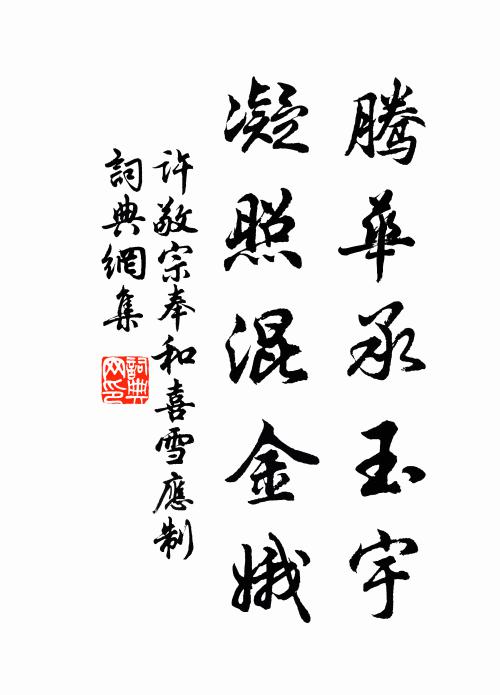 騰華承玉宇
凝照混金娥
許敬宗奉和喜雪應制
詞典網集
詞典网印